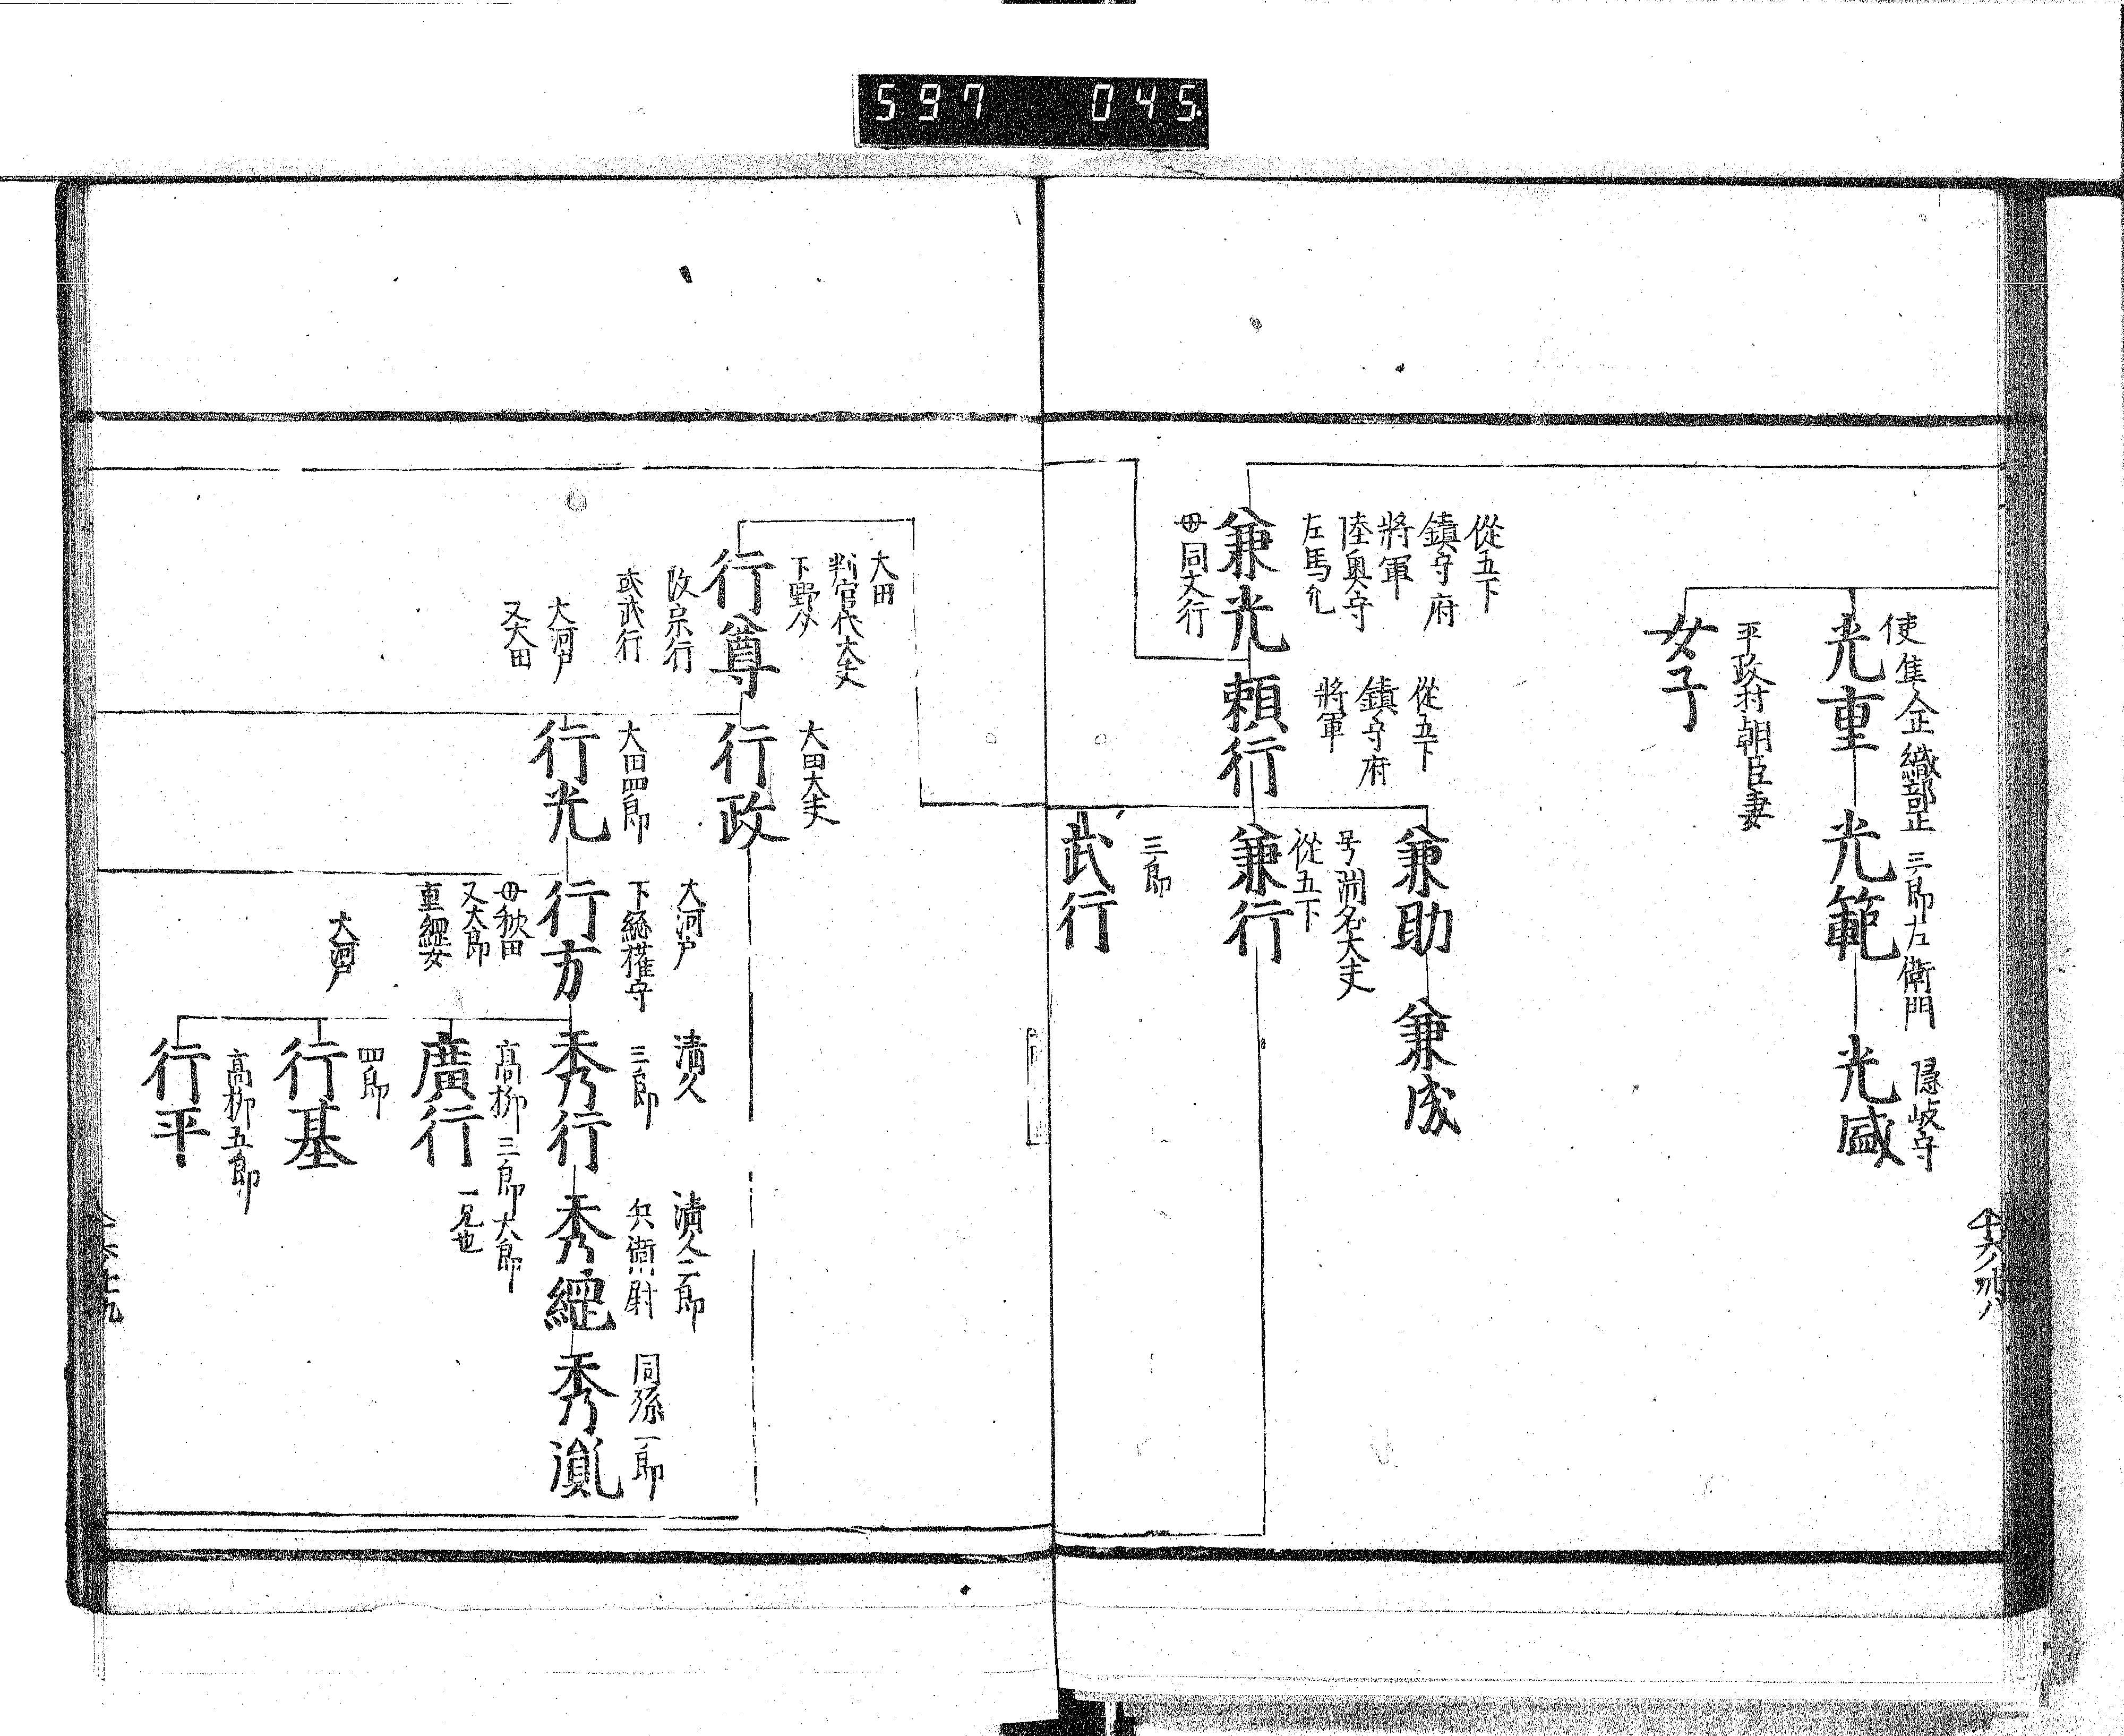 597 045
使隼人正織部正
光重
三郎左衛門
光範
隠岐守
光盛
平政村朝臣妻
女子
從五下
鎮守府
將軍
陸奥守
左馬允
兼光
母同文行
從五下
鎮守府
將軍
頼行
兼助
兼成
号渕名大夫
從五下
兼行
三郎
武行
大田
判官代大夫
下野介
行尊
改宗行
或武行
大田大夫
行政
大河戸
又大田
大田四郎
行光
大河戸
下総権守
行方
母秩田
又大郎
重經女
清久
三郎
秀行
清久二郎
兵衛尉
秀經
同孫一郎
秀胤
高栁三郎大郎
一見也
廣行
大河戸
四郎
行基
高栁五郎
行平